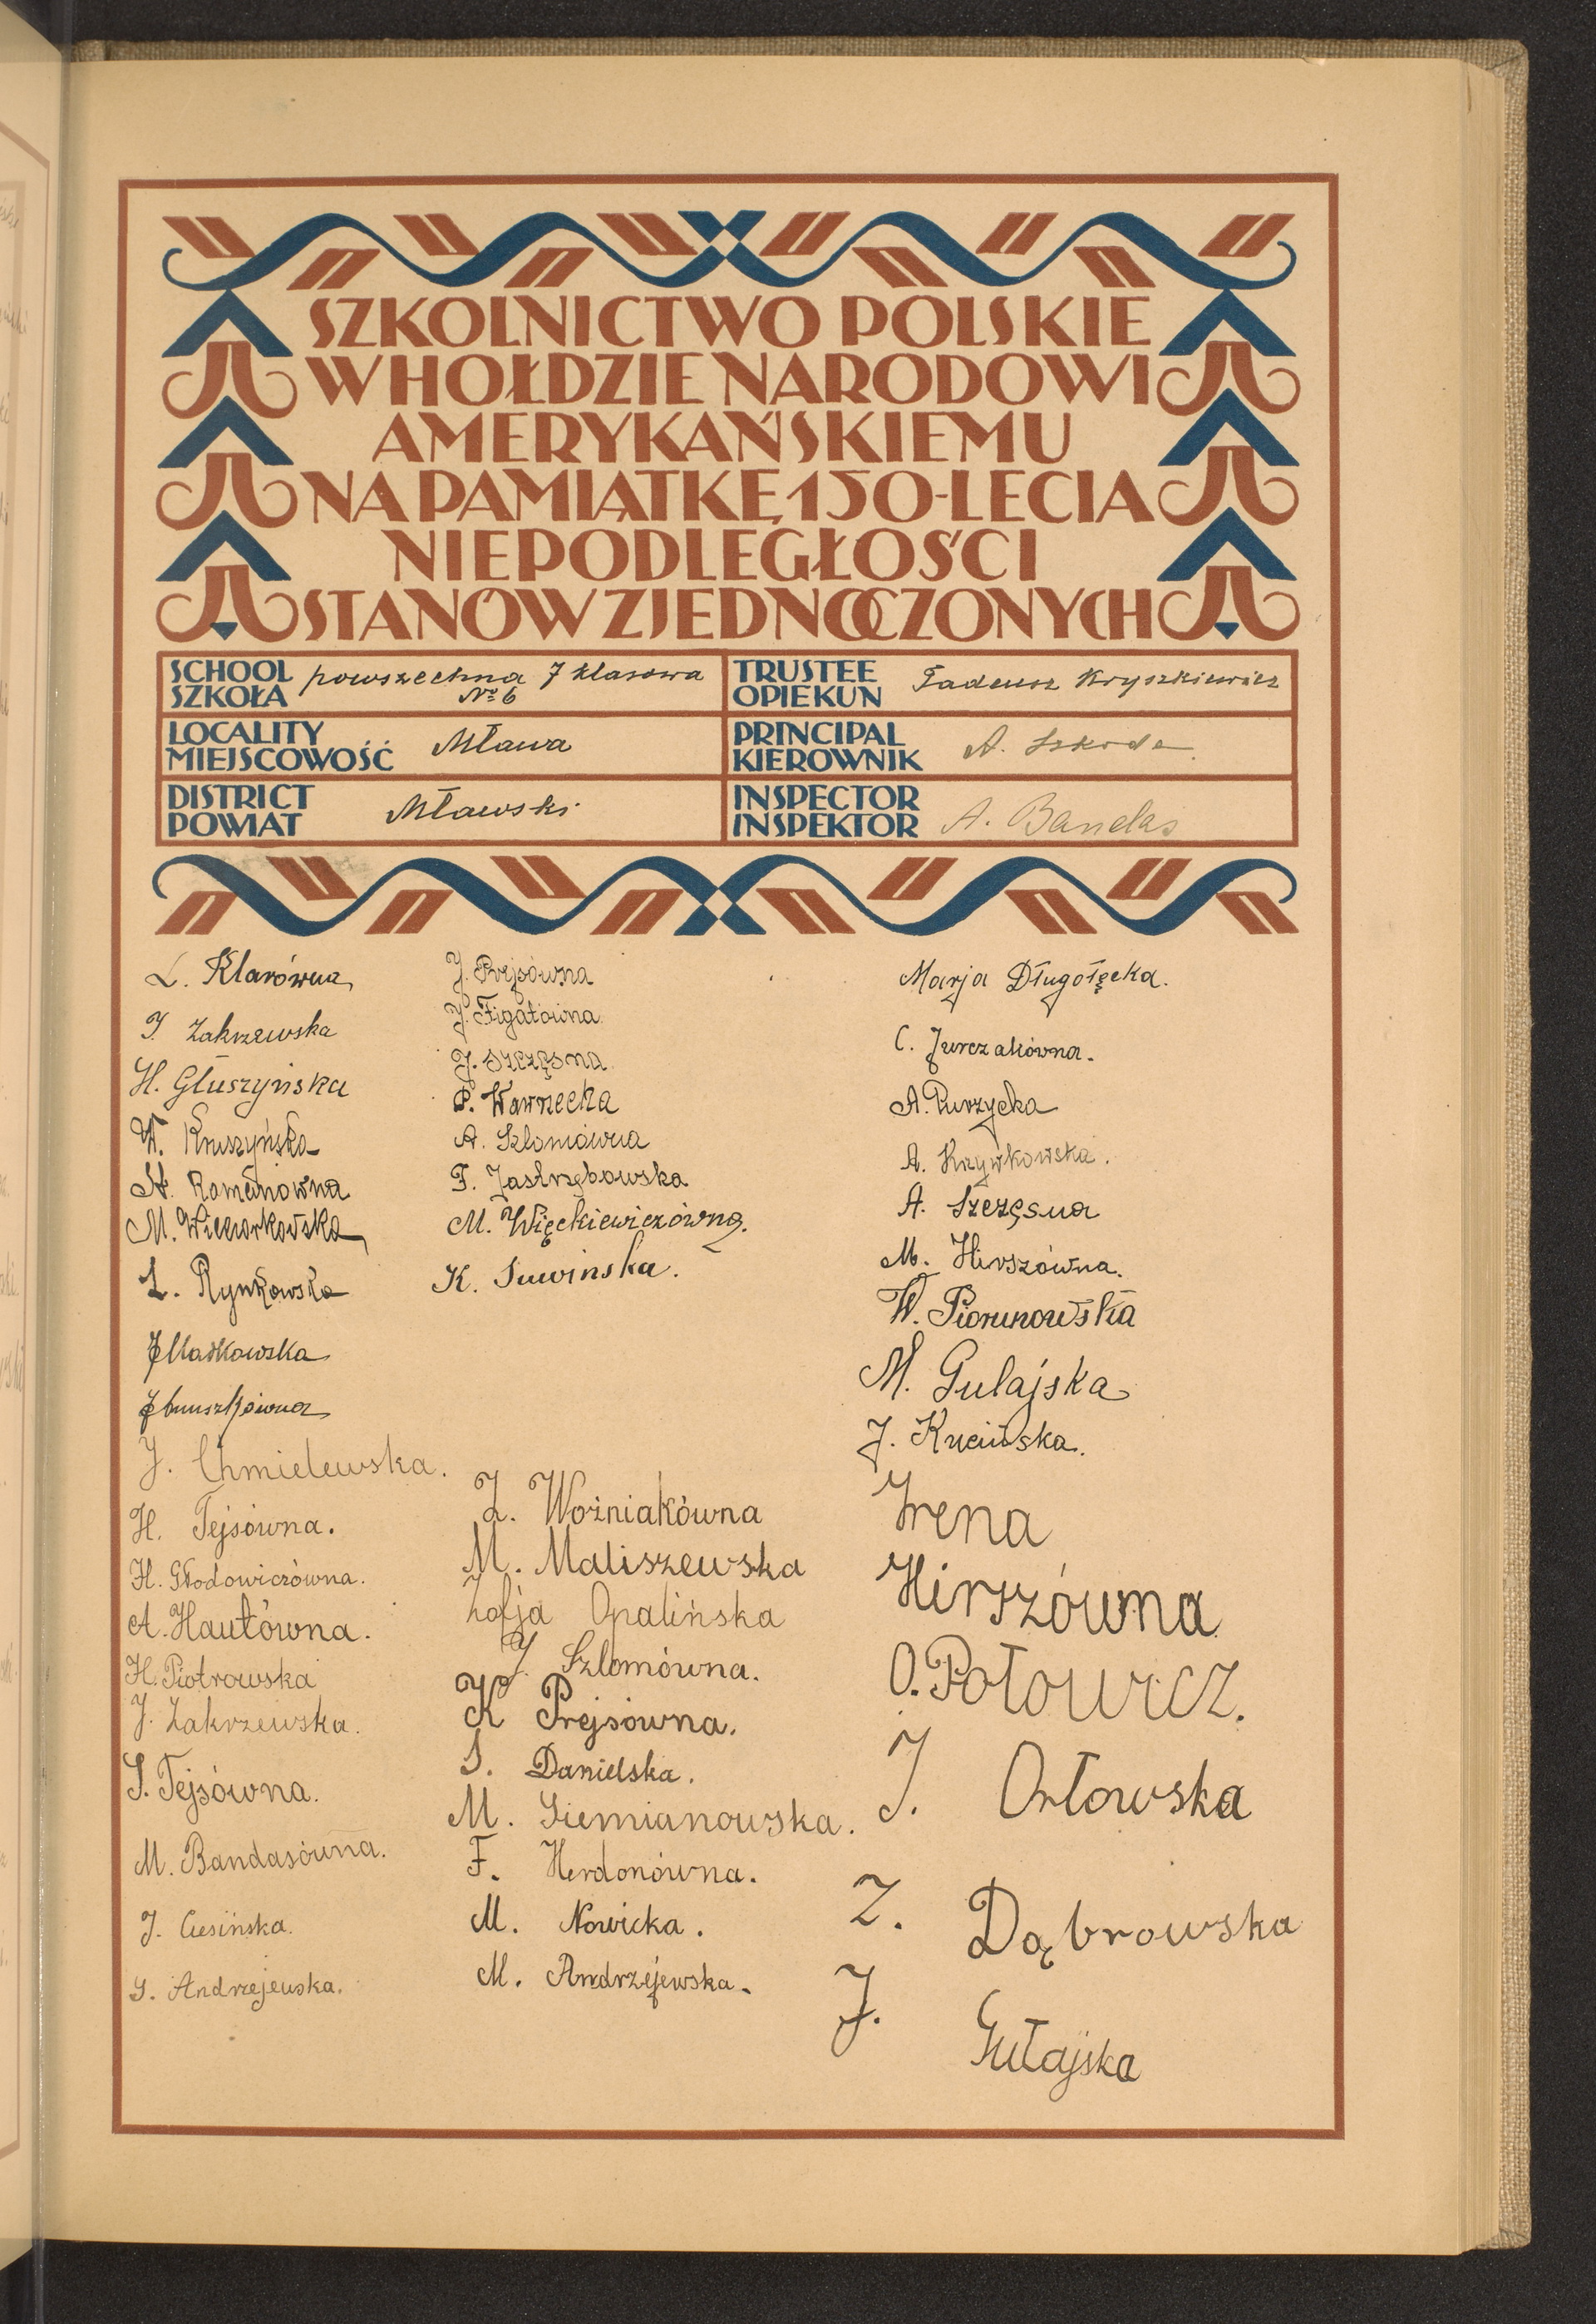 SZKOLNICTWO POLSKIE
W HOŁDZIE NARODOWI
AMERYKAŃSKIEMU
NA PAMIĄTKĘ 150-LECIA
NIEPODLEGŁOŚCI
STANÓW ZJEDNOCZONYCH
SCHOOL
SZKOŁA
powszechna 7 klasowa
№ 6
TRUSTEE
OPIEKUN
Tadeusz Kryszkiewicz
LOCALITY
MIEJSCOWOŚĆ
Mława
PRINCIPAL
KIEROWNIK
A. Szkoda
DISTRICT
POWIAT
Mławski
INSPECTOR
INSPEKTOR
A. Bandas
L. Klarówna
I. Zakrzewska
H. Głuszyńska
W. Kruszyńska
St. Romanówna
M. Wieczorkowska
L. Rynkowska
J Maskowska
J. Chmielewska.
H. Tejsówna.
H. Głodowiczówna.
A. Hautówna.
H. Piotrowska
J. Zakrzewska.
S. Tejsówna.
M. Bandasówna.
J. Ciesińska.
G. Andrzejewska.
J. Prejsówna
J. Figatówna
J. Szczęsna
P. Wawrzecka
A. Szlomówna
F. Jastrzębowska
M. Więckiewiczówna.
K. Suwińska.
Z. Woźniakówna
M. Maliszewska
Zofja Opalińska
J. Szlomówna.
K Prejsówna.
S. Danielska.
M. Siemianowska.
F. Herdonówna.
M. Nowicka.
M. Andrzejewska.
Marja Długołęcka.
C. Jurczakówna.
A. Purzycka
A. Krzywkowska.
A. Szczęsna
M. Hirszówna.
W. Piorunowska
M. Gulajska
J. Kucińska.
Irena
Hirszówna
O. Połowicz.
J. Orłowska
Z. Dąbrowska
J. Gułajska